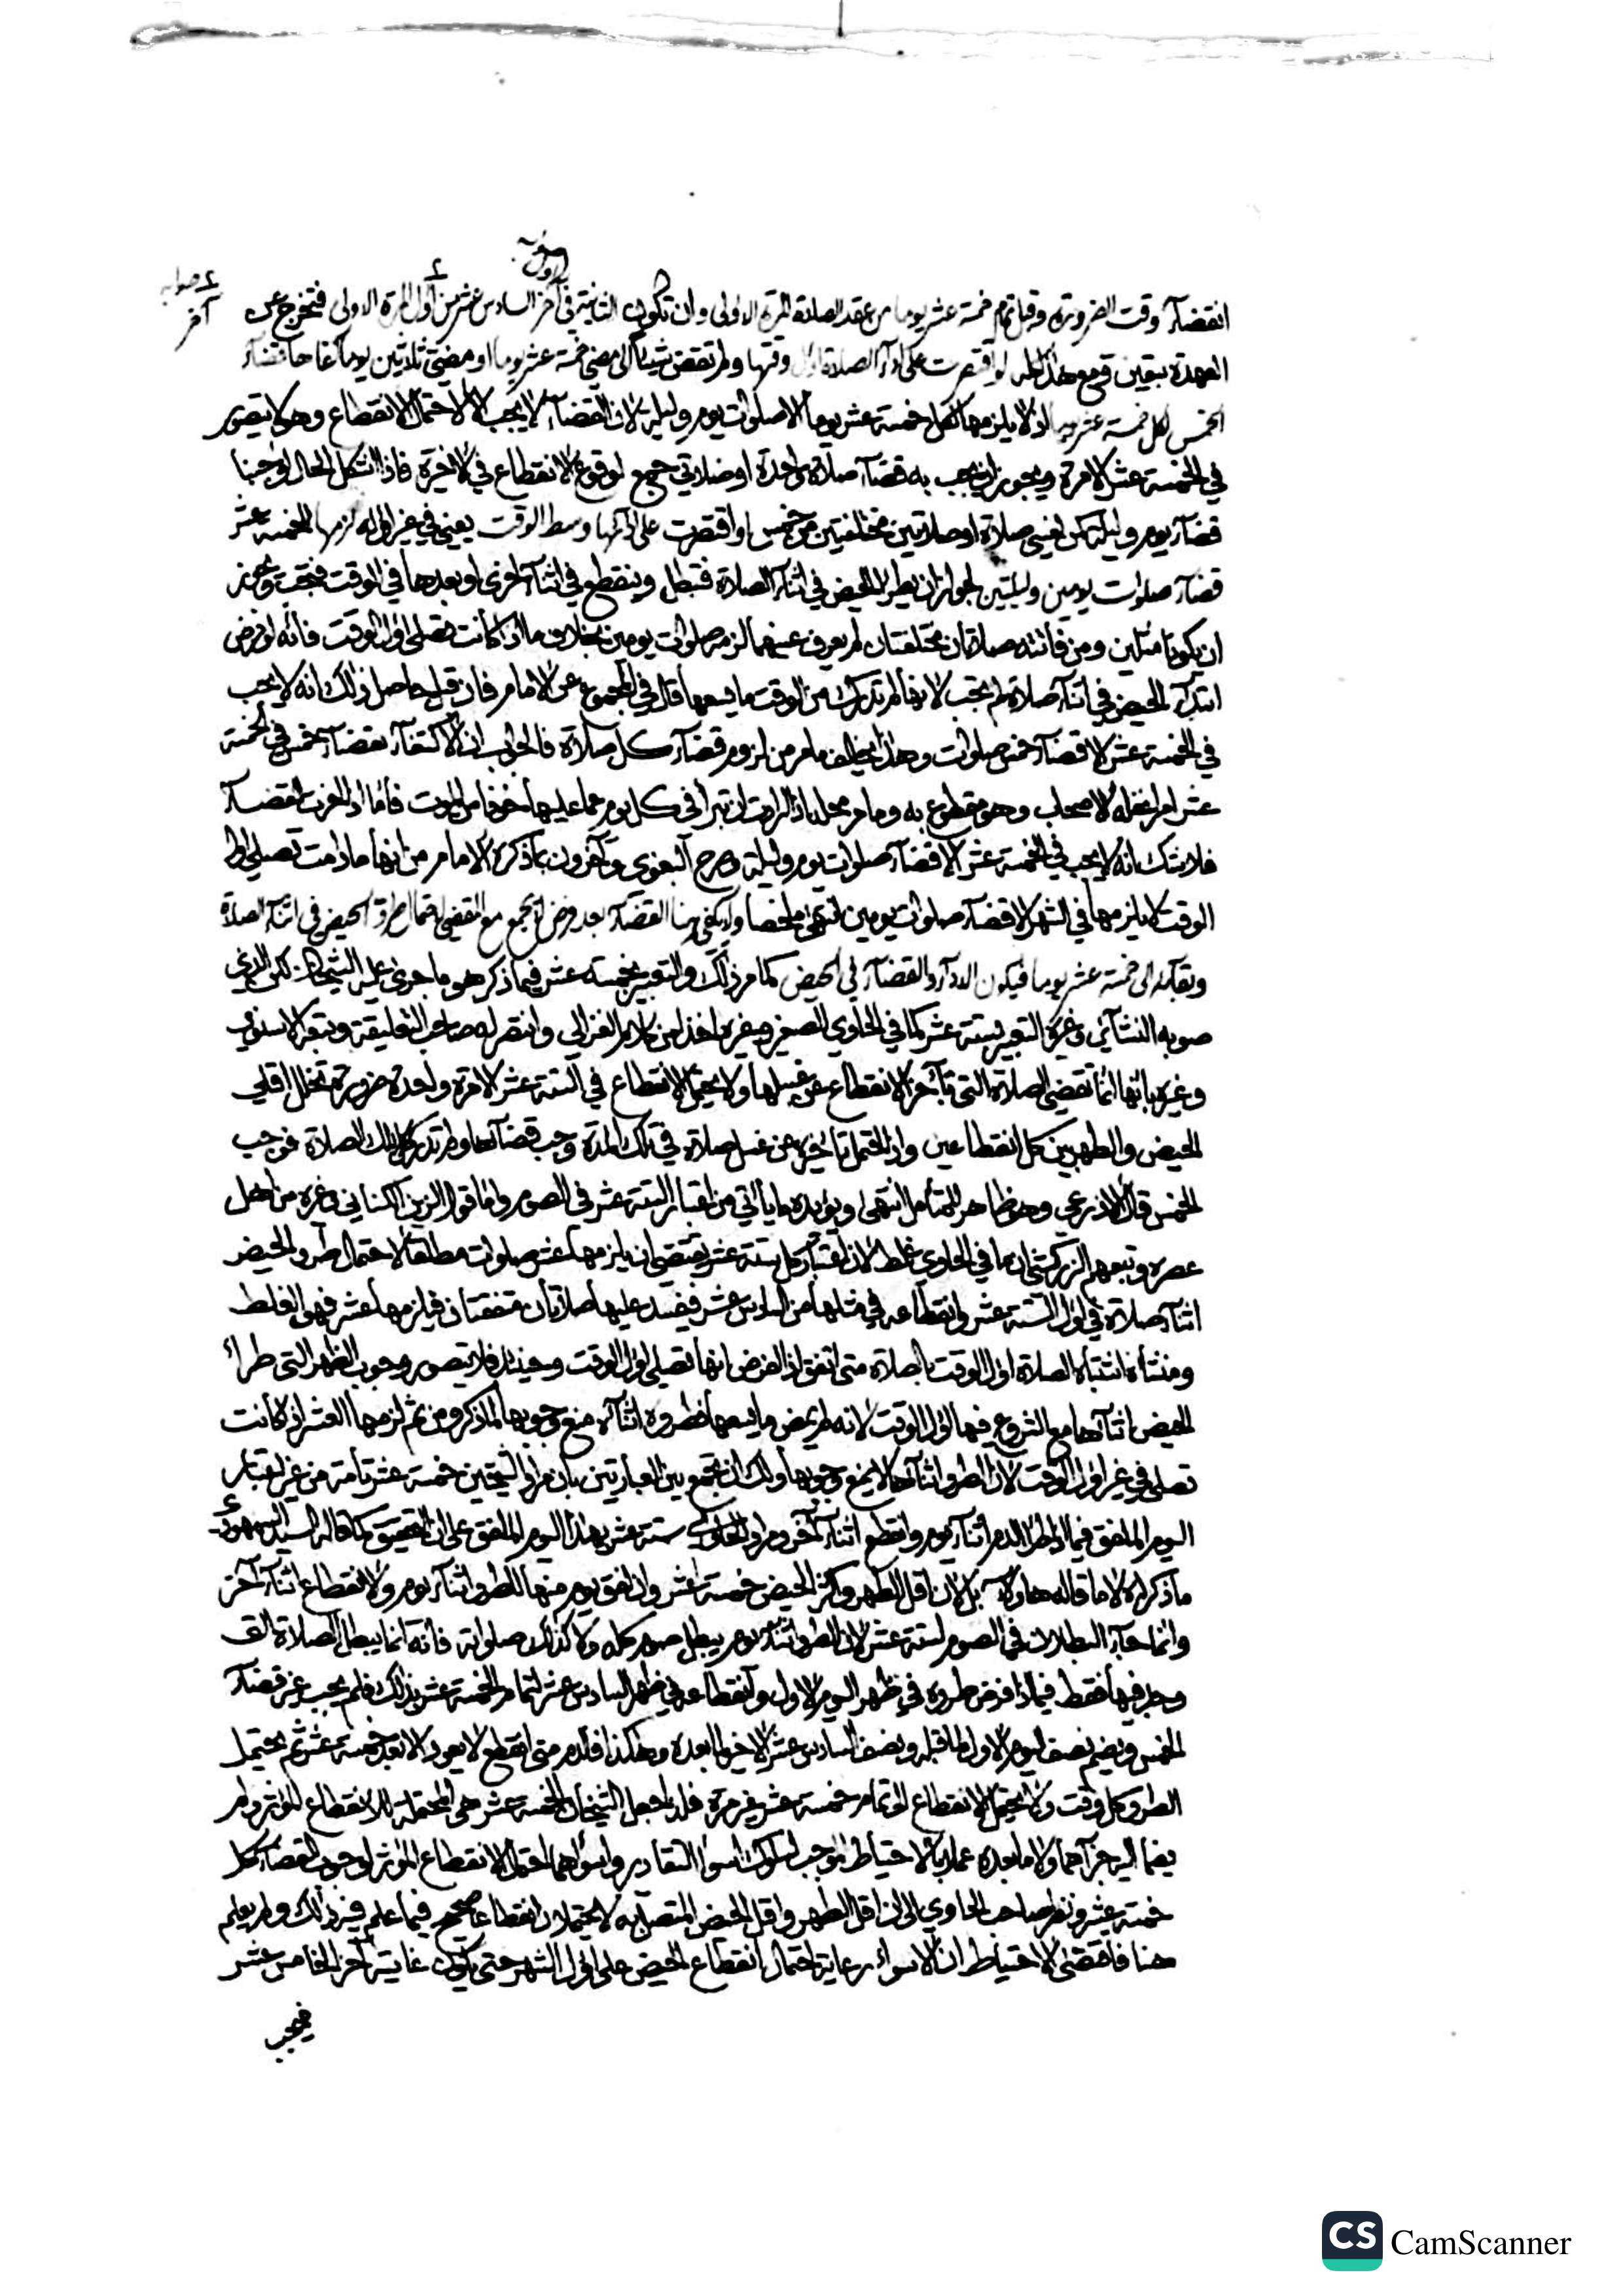 أول صوابه
صوابه آخر
انقضآء وقت الضرورة وقبل تمام خمسة عشر يوما من عقد الصلاة المرة الاولى وان تكون الثانية في آخر السادس عشر من أول المرة الاولى فتخرج عن
العهدة بيقين ومع هذا كله لو اقتصرت على ادآء الصلاة اول وقتها ولم تقض شيئا الى مضي خمسة عشر يوما او مضي ثلاثين يوما فاحا قضآء
الخمس لكل خمسة عشر يوما اذ لا يلزمها لكل خمسة عشر يوما الا صلوات يوم وليلة لان القضآء لا يجب الا لاحتمال الانقطاع وهو لا يتصور
في الخمسة عشر الا مرة ويجوز ان يجب به قضآء صلاة واحدة او صلاتي جمع لوقوع الانقطاع في الاخيرة فاذا اشكل الحال اوجبنا
قضآء يوم وليلة كمن نسي صلاة او صلاتين مختلفتين من خمس او اقتصرت على ادآئها وسط الوقت يعني في غير اوله لزمها للخمسة عشر
قضآء صلوات يومين وليلتين لجواز ان يطرأ الحيض في اثنآء الصلاة فتبطل وينقطع في اثنآء اخرى او بعدها في الوقت فتجب ويجوز
ان يكونا مثلين ومن فاتته صلاتان مختلفتان لم يعرف عينهما لزمه صلوات يومين بخلاف ما اذا كانت تصلي اول الوقت فانه لو فرض
ابتدآء الحيض في اثنآء صلاة لم تجب لانها لم تدرك من الوقت ما يسعها قال في المجموع عن الامام فان قيل حاصل ذلك انه لا يجب
في الخمسة عشر الا قضآء خمس صلوات وهذا يخالف ما مر من لزوم قضآء كل صلاة فالجواب ان الاكتفآء بقضآء خمس في الخمسة
عشر امر اغفله الاصحاب وهو مقطوع به وما مر محله اذا ارادت ان تبرأ في كل يوم عما عليها خوفا من الموت فأما اذا اخرت القضآء
فلا شك انه لا يجب في الخمسة عشر الا قضآء صلوات يوم وليلة وصرح البغوي وآخرون بما ذكره الامام من انها ما دامت تصلي اول
الوقت لا يلزمها في الشهر الا قضآء صلوات يومين انتهى ملخصا ولا يكفي هنا القضآء بعد فرض يجمع مع المقضي لاحتمال طرو الحيض في اثنآء الصلاة
وبقآئه الى خمسة عشر يوما فيكون الادآء والقضآء في الحيض كما مر ذلك والتعبير بخمسة عشر فيما ذكر هو ما جرى عليه الشيخان لكن الذي
صوبه النشآئي وغيره التعبير بستة عشر كما في الحاوي الصغير وغيره اخذا من كلام الغزالي وانتصر له صاحب التعليقة وتبعه الاسنوي
وغيره بانها انما تقضي الصلاة التي تأخر الانقطاع عن غسلها ولا يحتمل الانقطاع في الستة عشر الا مرة واحدة ضرورة تخلل اقلي
الحيض والطهر بين كل انقطاعين واذا احتمل تأخيره عن غسل صلاة في تلك المدة وجب قضآئها ولم تدر تلك الصلاة فوجب
الخمس قال الاذرعي وهو ظاهر للمتأمل انتهى ويؤيده ما يأتي من اعتبار الستة عشر في الصوم واما قول الزين الكناني وغيره من اهل
عصره وتبعهم الزركشي ان ما في الحاوي غلط لان اعتبار كل ستة عشر يقتضي ان يلزمها عشر صلوات مطلقا لاحتمال طرو الحيض
اثنآء صلاة في اول الستة عشر وانقطاعه في مثلها من السادس عشر فيفسد عليها صلاتان متفقتان فيلزمها عشر فهو الغلط
ومنشأه اشتباه الصلاة اول الوقت بالصلاة متى اتفق اذ الفرض انها تصلي اول الوقت وحينئذ فلا يتصور وجوب الظهر التي طرأ
الحيض اثنآئها مع الشروع فيها اول الوقت لانه لم يمض ما يسعها فطروه اثنآئه منع وجوبها لما ذكر ومن ثم لزمها العشر اذا كانت
تصلي في غير اول الوقت لان الطرو اثنآئها لا يمنع وجوبها ولك ان تجمع بين العبارتين بأن مراد الشيخين خمسة عشر تامة من غير اعتبار
اليوم الملفق فيما اذا طرأ الدم اثنآء يوم وانقطع اثنآء آخر ومراد الحاوي ستة عشر بهذا اليوم الملفق على ان التحقيق كما قاله السيد السمهودي
ما ذكراه لا ما قاله هاولآء بل لان اقل الطهر واكثر الحيض خمسة عشر وان لفق يوم منها للطرو اثنآء يوم والانقطاع اثنآء آخر
وانما جآء البطلان في الصوم لستة عشر لان الطرو اثنآء يوم يبطل صوم كله ولا كذلك صلواته فانه انما يبطل الصلاة التي
وجد فيها فقط فيما اذا فرض طروه في ظهر اليوم الاول وانقطاعه في ظهر السادس عشر لتمام الخمسة عشر بذلك فلم يجب غير قضآء
الخمس ويضم نصف اليوم الاول لما قبله ونصف السادس عشر الاخير لما بعده وهكذا فالدم متى انقطع لا يعود الا بعد خمسة عشر ثم يحتمل
الطرو كل وقت ولا يحتمل الانقطاع الا لتمام خمسة عشر غير مرة فلذا جعل الشيخان الخمسة عشر هي المحتملة للانقطاع المؤثر ولم
يضما اليه جزآ مما ولا ما بعده عملا بالاحتياط الموجب لسلوك اسوإ التقادير واسوأها احتمال الانقطاع المؤثر لوجوب القضآء كل
خمسة عشر ونظر صاحب الحاوي الى ان اقل الطهر واقل الحيض المتصل به لا يحتملان انقطاعا صحيح فيما علم فيه ذلك ولم يعلم
هنا فاقتضى الاحتياط ان الاسوأ رعاية احتمال انقطاع الحيض على اول الشهر حتى يكون غايته آخر الخامس عشر
فيجب
CS CamScanner